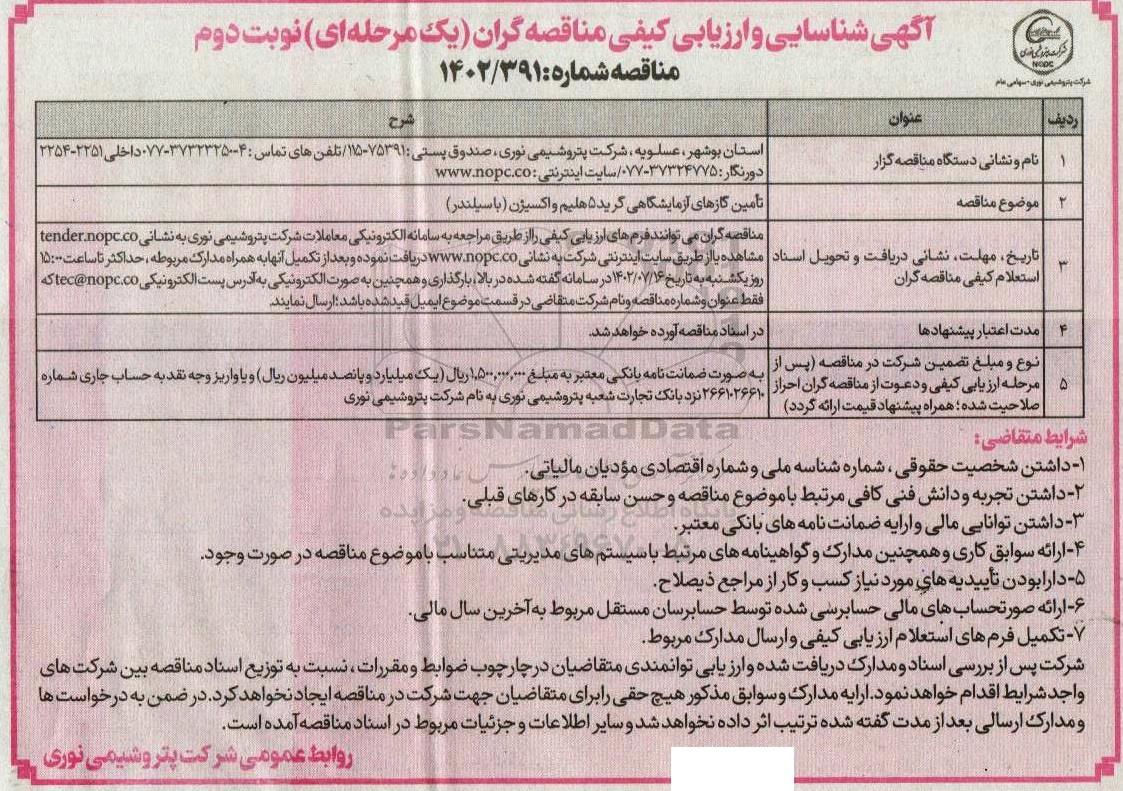 آگهی شناسایی و ارزیابی کیفی مناقصه گران (یک مرحله‌ای) نوبت دوم
مناقصه شماره: ۱۴۰۲/۳۹۱
شرکت پتروشیمی نوری
NOPC
شرکت پتروشیمی نوری-سهامی عام
ردیف عنوان شرح
۱ نام و نشانی دستگاه مناقصه گزار
استان بوشهر، عسلویه، شرکت پتروشیمی نوری، صندوق پستی: ۷۵۳۹۱-۱۱۵/ تلفن های تماس: ۴-۳۷۳۲۳۲۵۰-۰۷۷ داخلی ۲۲۵۱-۲۲۵۴
دورنگار: ۳۷۳۲۴۷۷۵-۰۷۷/ سایت اینترنتی: www.nopc.co
۲ موضوع مناقصه
تأمین گازهای آزمایشگاهی گرید ۵ هلیم و اکسیژن (با سیلندر)
۳ تاریخ، مهلت، نشانی دریافت و تحویل اسناد
استعلام کیفی مناقصه گران
مناقصه گران می توانند فرم های ارزیابی کیفی را از طریق مراجعه به سامانه الکترونیکی معاملات شرکت پتروشیمی نوری به نشانی tender.nopc.co
مشاهده یا از طریق سایت اینترنتی شرکت به نشانی www.nopc.co دریافت نموده و بعد از تکمیل آنها به همراه مدارک مربوطه، حداکثر تا ساعت ۱۵:۰۰
روز یکشنبه به تاریخ ۱۴۰۲/۰۷/۱۶ در سامانه گفته شده در بالا، بارگذاری و همچنین به صورت الکترونیکی به آدرس پست الکترونیکی tec@nopc.co که
فقط عنوان و شماره مناقصه و نام شرکت متقاضی در قسمت موضوع ایمیل قید شده باشد؛ ارسال نمایند.
۴ مدت اعتبار پیشنهادها
در اسناد مناقصه آورده خواهد شد.
۵ نوع و مبلغ تضمین شرکت در مناقصه (پس از
مرحله ارزیابی کیفی و دعوت از مناقصه گران احراز
صلاحیت شده؛ همراه پیشنهاد قیمت ارائه گردد)
به صورت ضمانت نامه بانکی معتبر به مبلغ ۱,۵۰۰,۰۰۰,۰۰۰ ریال (یک میلیارد و پانصد میلیون ریال) و یا واریز وجه نقد به حساب جاری شماره
۲۶۶۱۰۲۶۶۱۰ نزد بانک تجارت شعبه پتروشیمی نوری به نام شرکت پتروشیمی نوری
ParsNamadData
شرایط متقاضی:
۱-داشتن شخصیت حقوقی، شماره شناسه ملی و شماره اقتصادی مؤدیان مالیاتی.
۲-داشتن تجربه و دانش فنی کافی مرتبط با موضوع مناقصه و حسن سابقه در کارهای قبلی.
پایگاه اطلاع رسانی مناقصه و مزایده
۳-داشتن توانایی مالی و ارایه ضمانت نامه های بانکی معتبر.
۴-ارائه سوابق کاری و همچنین مدارک و گواهینامه های مرتبط با سیستم های مدیریتی متناسب با موضوع مناقصه در صورت وجود.
۵-دارا بودن تأییدیه های مورد نیاز کسب و کار از مراجع ذیصلاح.
۶-ارائه صورتحساب های مالی حسابرسی شده توسط حسابرسان مستقل مربوط به آخرین سال مالی.
۷-تکمیل فرم های استعلام ارزیابی کیفی و ارسال مدارک مربوط.
شرکت پس از بررسی اسناد و مدارک دریافت شده و ارزیابی توانمندی متقاضیان در چارچوب ضوابط و مقررات، نسبت به توزیع اسناد مناقصه بین شرکت های
واجد شرایط اقدام خواهد نمود. ارایه مدارک و سوابق مذکور هیچ حقی را برای متقاضیان جهت شرکت در مناقصه ایجاد نخواهد کرد. در ضمن به درخواست ها
و مدارک ارسالی بعد از مدت گفته شده ترتیب اثر داده نخواهد شد و سایر اطلاعات و جزئیات مربوط در اسناد مناقصه آمده است.
روابط عمومی شرکت پتروشیمی نوری